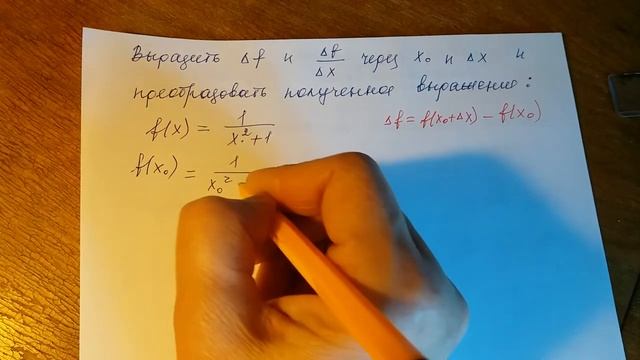 Выразить Δf и Δf/Δx через x₀ и Δx и
преобразовать полученное выражение:
f(x) = 1/(x²+1)
Δf = f(x₀+Δx) – f(x₀)
f(x₀) = 1/(x₀²